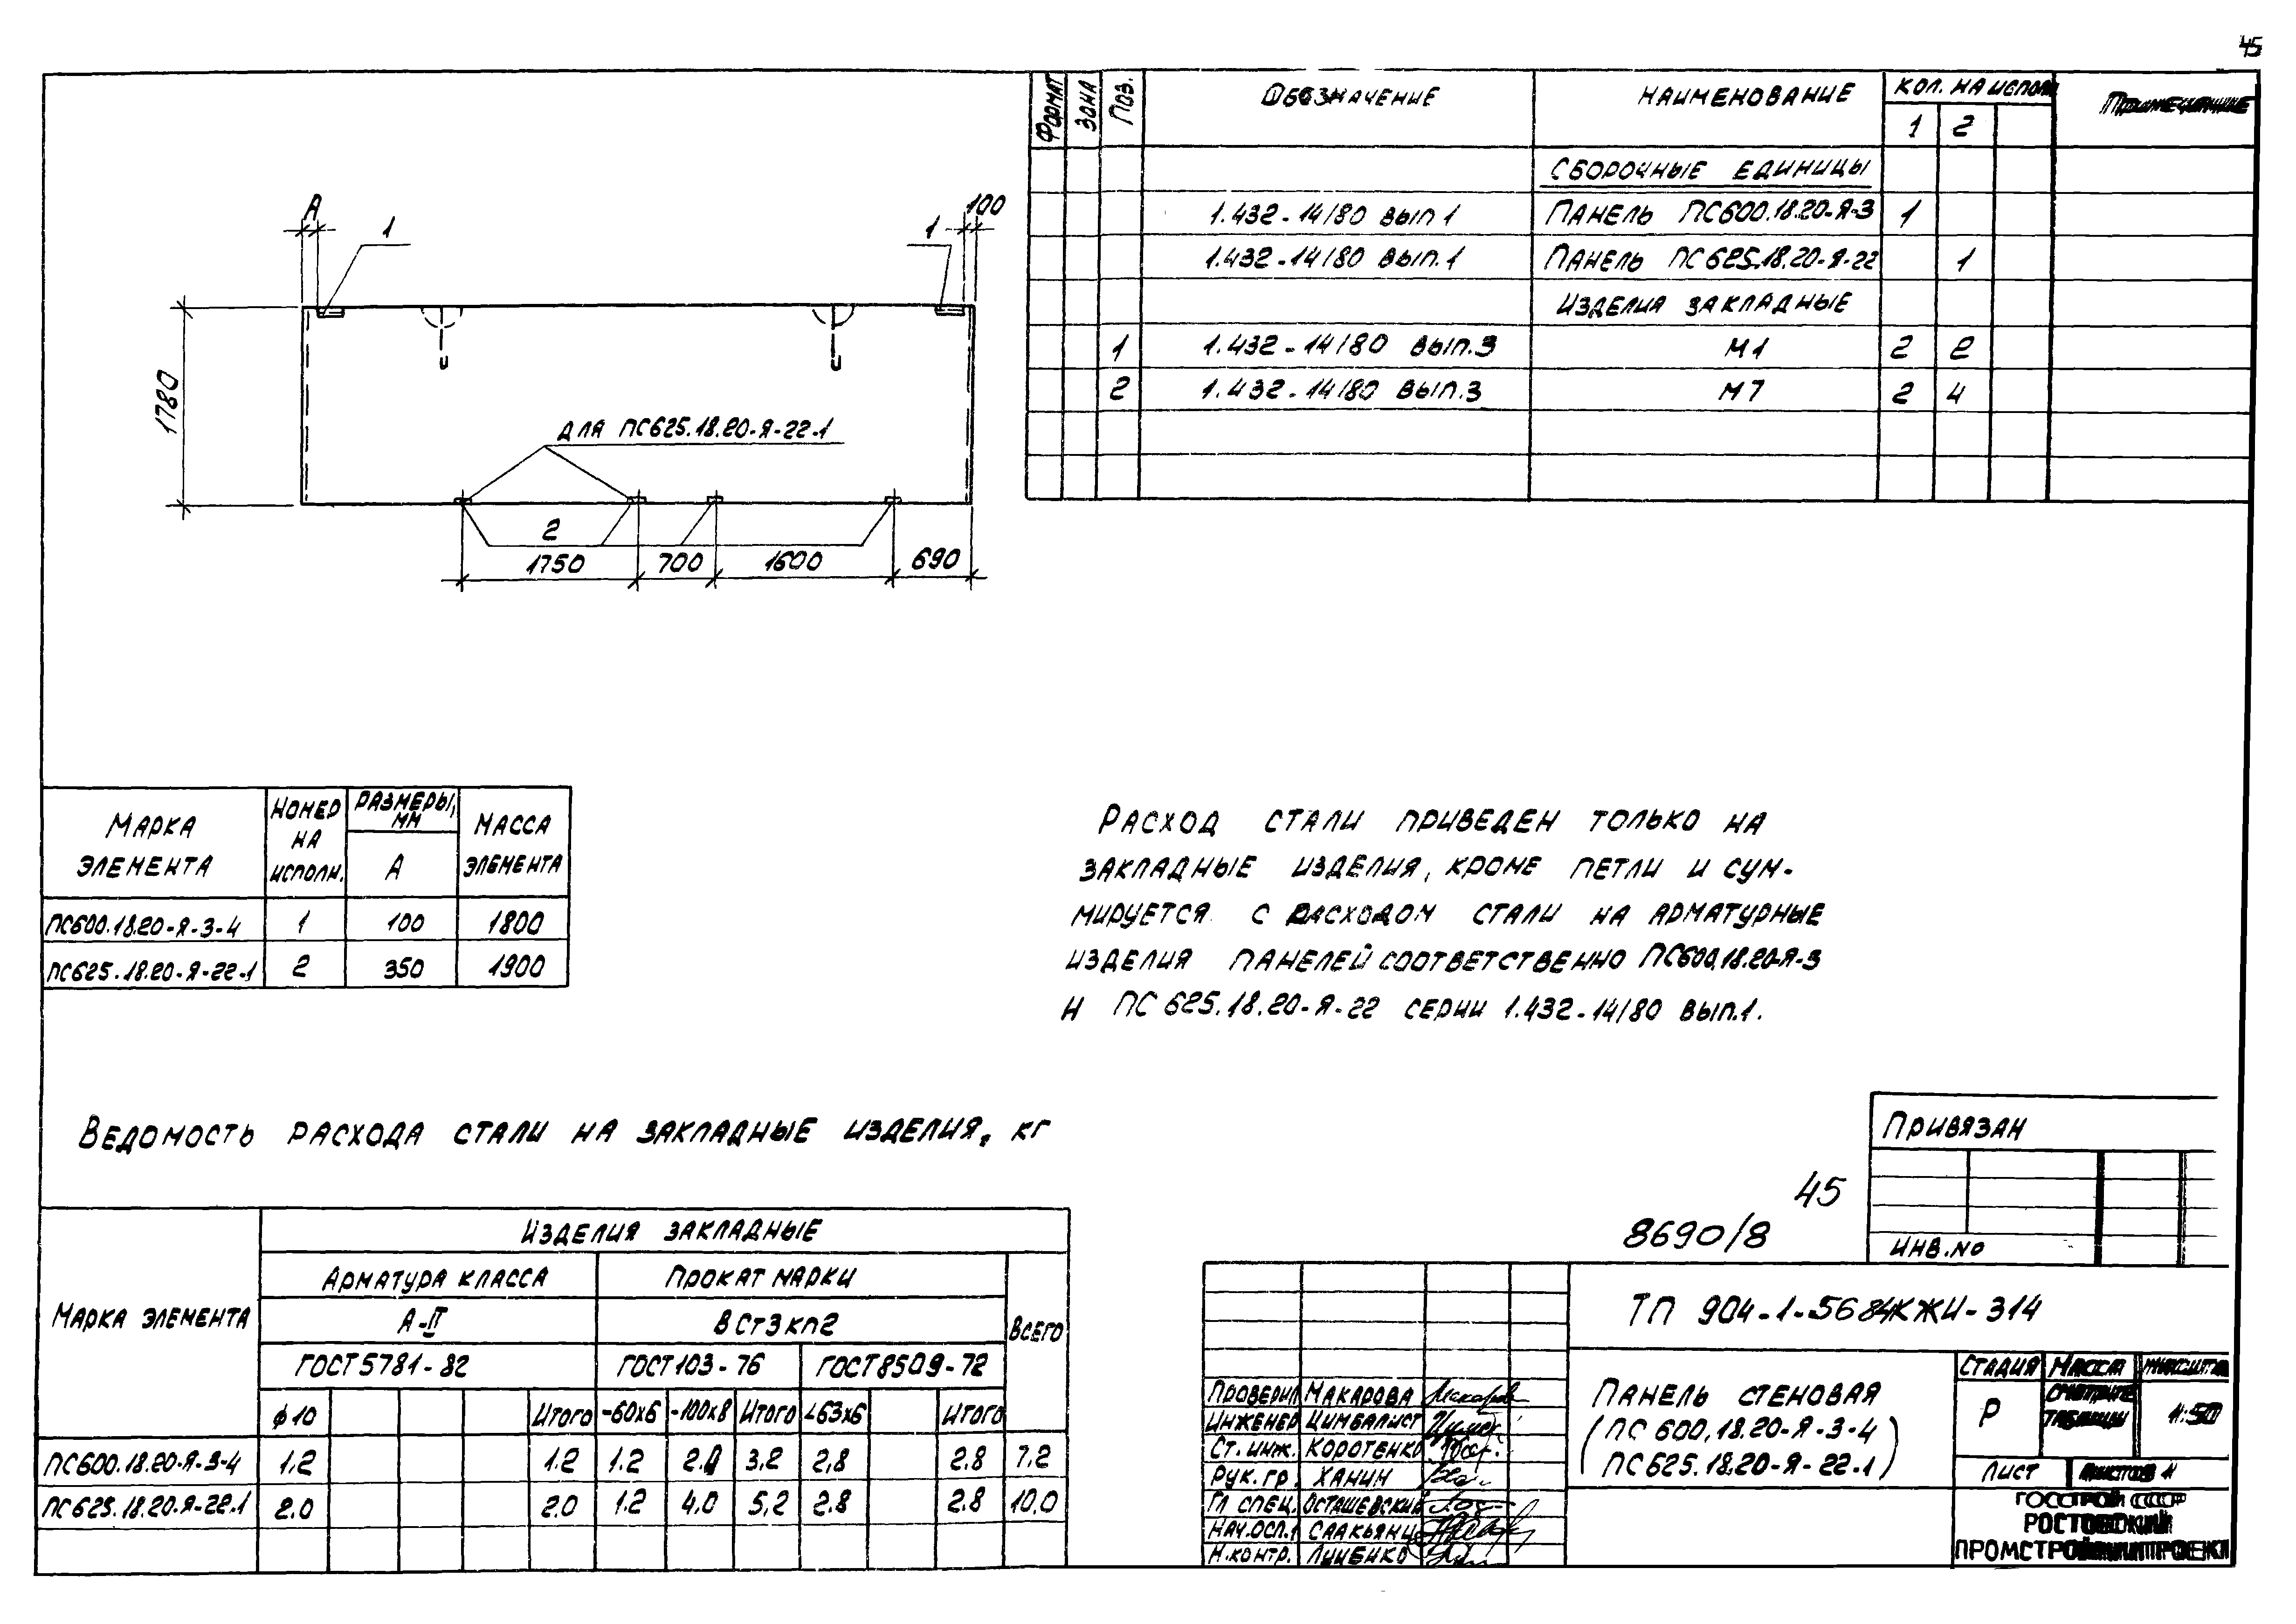 45
А
1
1
100
1780
для ПС625.18.20-Я-22-1
2
1750 700 1600 690
Формат Зона Поз. Обозначение Наименование Кол. на испол
1 2
Сборочные единицы
1.432-14/80 вып 1 Панель ПС600.18.20-Я-3 1
1.432-14/80 вып.1 Панель ПС625.18.20-Я-22 1
Изделия закладные
1 1.432-14/80 вып.3 М1 2 2
2 1.432-14/80 вып.3 М7 2 4
Марка элемента Номер на исполн. Размеры, мм Масса элемента
А
ПС600.18.20-Я-3-4 1 100 1800
ПС625.18.20-Я-22-1 2 350 1900
Расход стали приведен только на
закладные изделия, кроме петли и сум-
мируется с расходом стали на арматурные
изделия панелей соответственно ПС600.18.20-Я-3
и ПС 625.18.20-Я-22 серии 1.432-14/80 вып.1.
Ведомость расхода стали на закладные изделия, кг
Марка элемента Изделия закладные
Арматура класса Прокат марки Всего
А-II ВСт3кп2
ГОСТ 5781-82 ГОСТ 103-76 ГОСТ 8509-72
ф10 Итого -60х6 -100х8 Итого L63х6 Итого
ПС600.18.20-Я-3-4 1,2 1.2 1.2 2.0 3,2 2,8 2.8 7,2
ПС625.18.20-Я-22-1 2.0 2.0 1.2 4.0 5,2 2.8 2.8 10,0
Привязан
45
8690/8
Инв.No
ТП 904-1-56.84КЖИ-314
Проверил Макарова
Инженер Цимбалист
Ст. инж. Коротенко
Рук. гр. Ханин
Гл спец. Осташевский
Нач.осп.1 Саакьянц
Н.контр.
Панель стеновая
(ПС 600.18.20-Я-3-4
ПС625.18.20-Я-22-1)
Стадия Масса Масштаб
Р Смотрите таблицы 1:50
Лист Листов 1
ГОССТРОЙ СССР
РОСТОВСКИЙ
ПРОМСТРОЙНИИПРОЕКТ